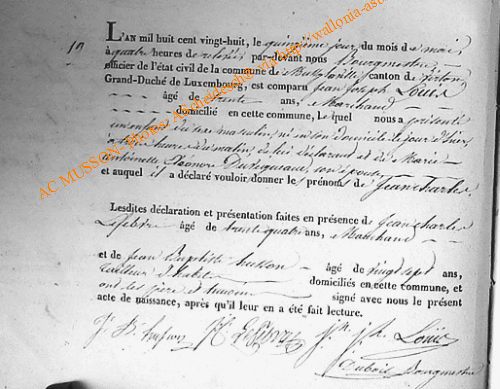 19
L'AN mil huit cent vingt-huit, le quinzième jour du mois de mai
à quatre heures de relevée par-devant nous Bourgmestre
officier de l'état civil de la commune de canton de Virton
Grand-Duché de Luxembourg, est comparu Jean Joseph Louis
âgé de trente ans, Marchand
domicilié en cette commune, lequel nous a présenté
un enfant du sexe masculin, né en son domicile le jour d'hier
à heure du matin, de lui déclarant et de Marie
Antoinette Eléonore son épouse
et auquel il a déclaré vouloir donner le prénoms de Jean Charles.
Lesdites déclaration et présentation faites en présence de Jean Charles
Lefebvre âgé de trente quatre ans, Marchand
et de Jean Baptiste husson âgé de vingt sept ans,
tailleur d'habit domiciliés en cette commune, et
ont les père et témoins signé avec nous le présent
acte de naissance, après qu'il leur en a été fait lecture.
J. B. husson Lefebvre j.h j.ph Louis
Dubois Bourgmestre
AC MUSSON- Photos http://wallonia-as